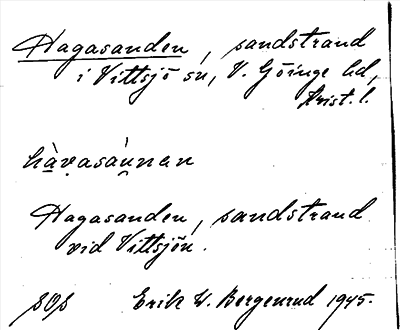 Hagasanden, sandstrand
i Vittsjö sn, V. Göinge hd,
Krist. l.
hàvasáu̯nan
Hagasanden, sandstrand
vid Vittsjön.
SOS Erik W. Bergenrud 1945.